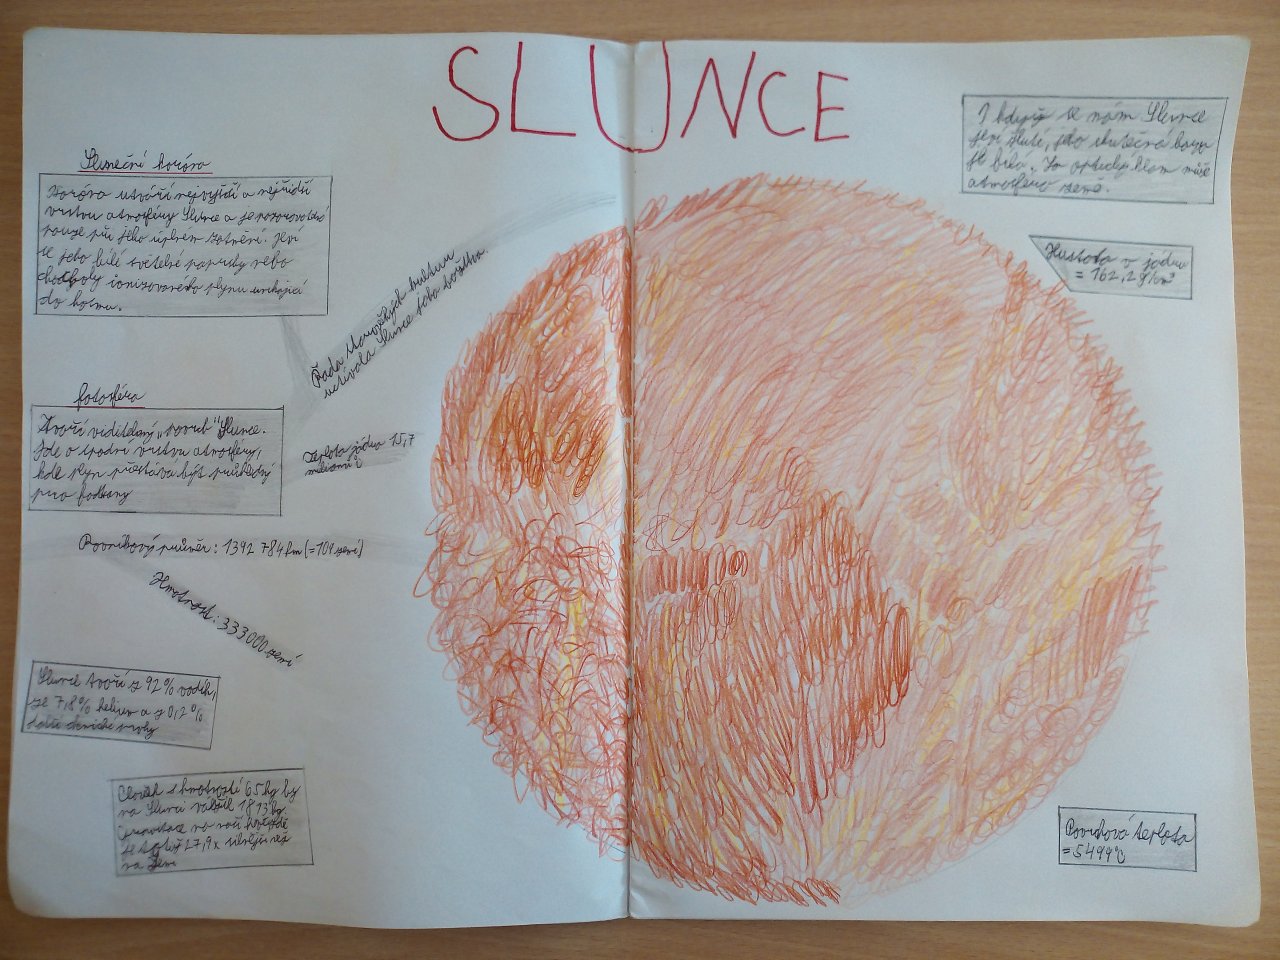 SLUNCE
Sluneční koróna
Koróna utváří nejvyšší a nejřidší
vrstvu atmosféry Slunce a je pozorovatelná
pouze při jeho úplném zatmění. Jeví
se jako bílé světelné paprsky nebo
chocholy ionizovaného plynu unikající
do kosmu.
Řada starověkých kultur
uctívala Slunce jako božstvo
fotosféra
Tvoří viditelný „povrch" Slunce.
Jde o spodní vrstvu atmosféry,
kde plyn přestává být průhledný
pro fotony
Teplota jádra 15,7
Rovníkový průměr: 1392 784 km (=109 zemí)
Hmotnost: 333000 zemí
Slunce tvoří z 92% vodík,
ze 7,8% helium a z 0,2%
další chemické prvky
Člověk s hmotností 65 kg by
na Slunci vážil 1813 kg.
Gravitace na naší hvězdě
je totiž 27,9x silnější než
na Zemi
I když se nám Slunce
jeví žluté, jeho skutečná barva
je bílá. Za optický klam může
atmosféra země.
Hustota v jádru
= 162,2 g/cm³
Povrchová teplota
= 5499°C